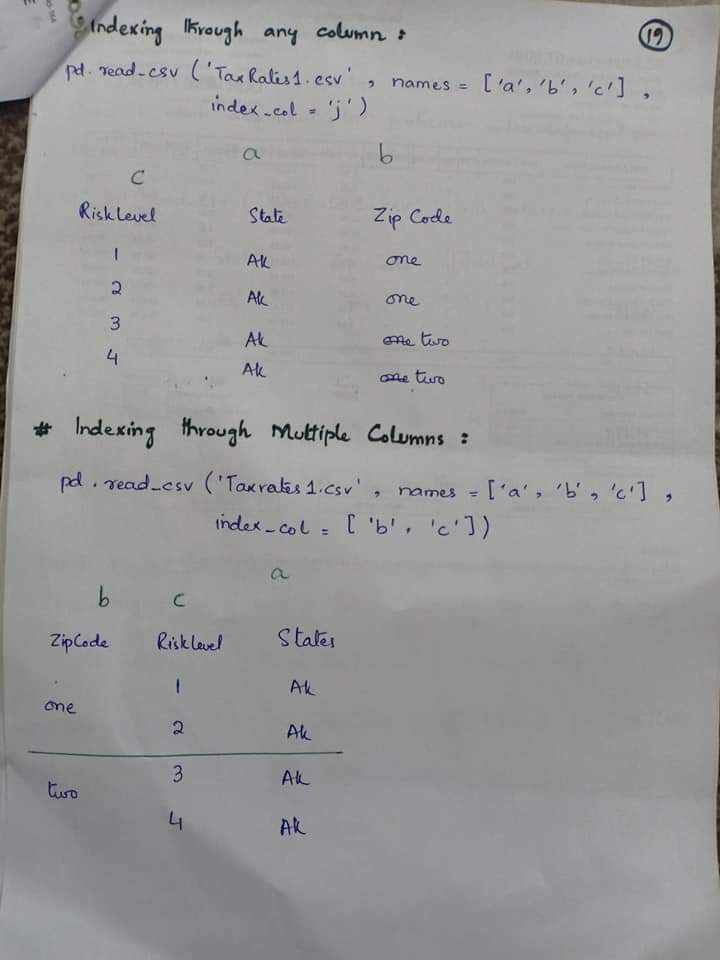 Indexing through any column :
19
pd.read_csv ('TaxRates1.csv' , names = ['a', 'b', 'c'] ,
index_col = 'j')
a b
c
Risk Level State Zip Code
1 Ak one
2 Ak one
3 Ak one two
4 Ak one two
# Indexing through Multiple Columns :
pd.read_csv ('Taxrates1.csv' , names = ['a', 'b', 'c'] ,
index_col = ['b', 'c'])
a
b c
ZipCode Risk Level States
one 1 Ak
2 Ak
two 3 Ak
4 Ak